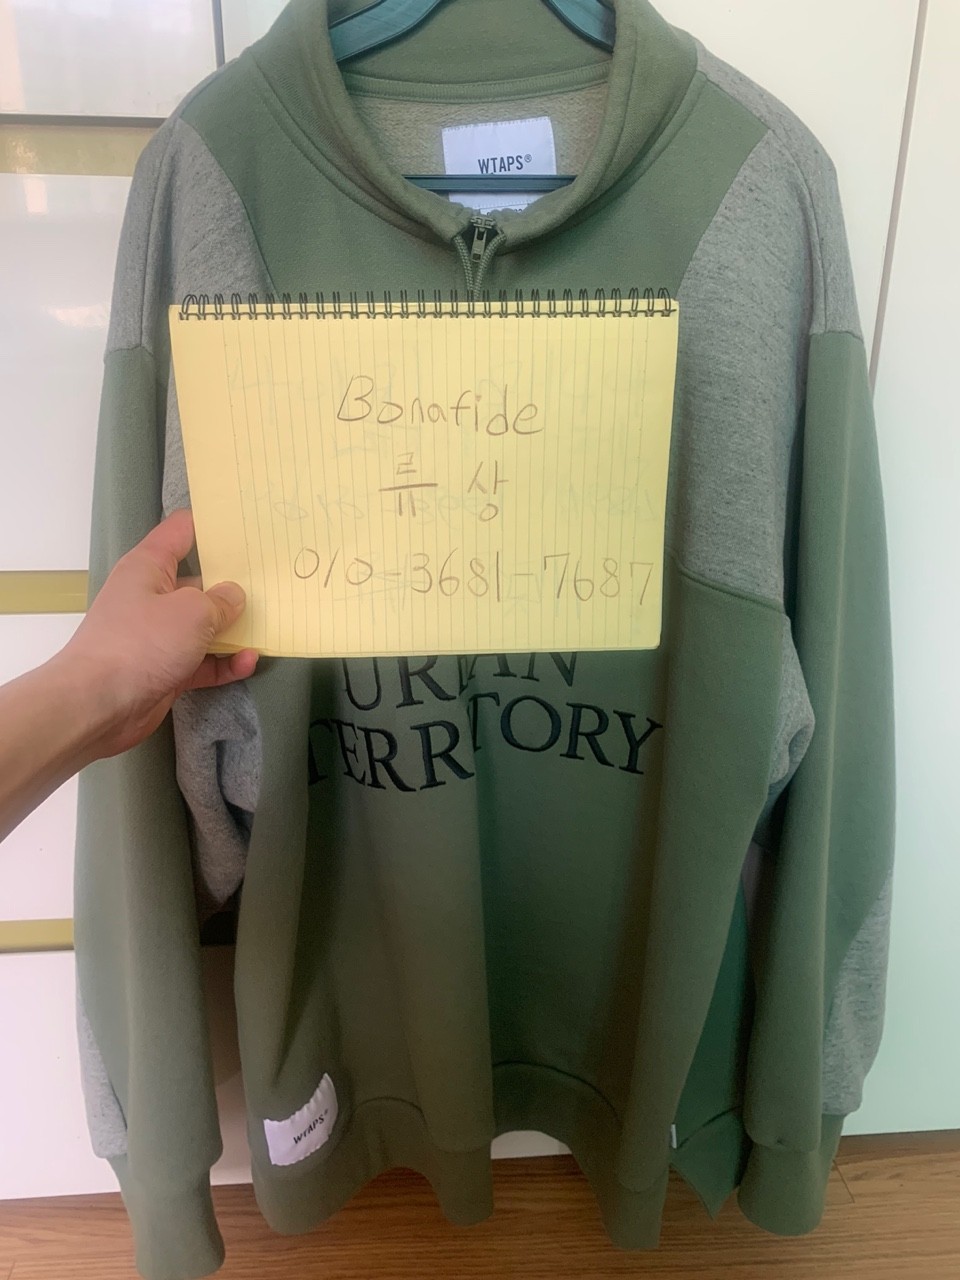 WTAPS®
Bonafide
류상
010-3681-7687
URBAN
TERRITORY
WTAPS®